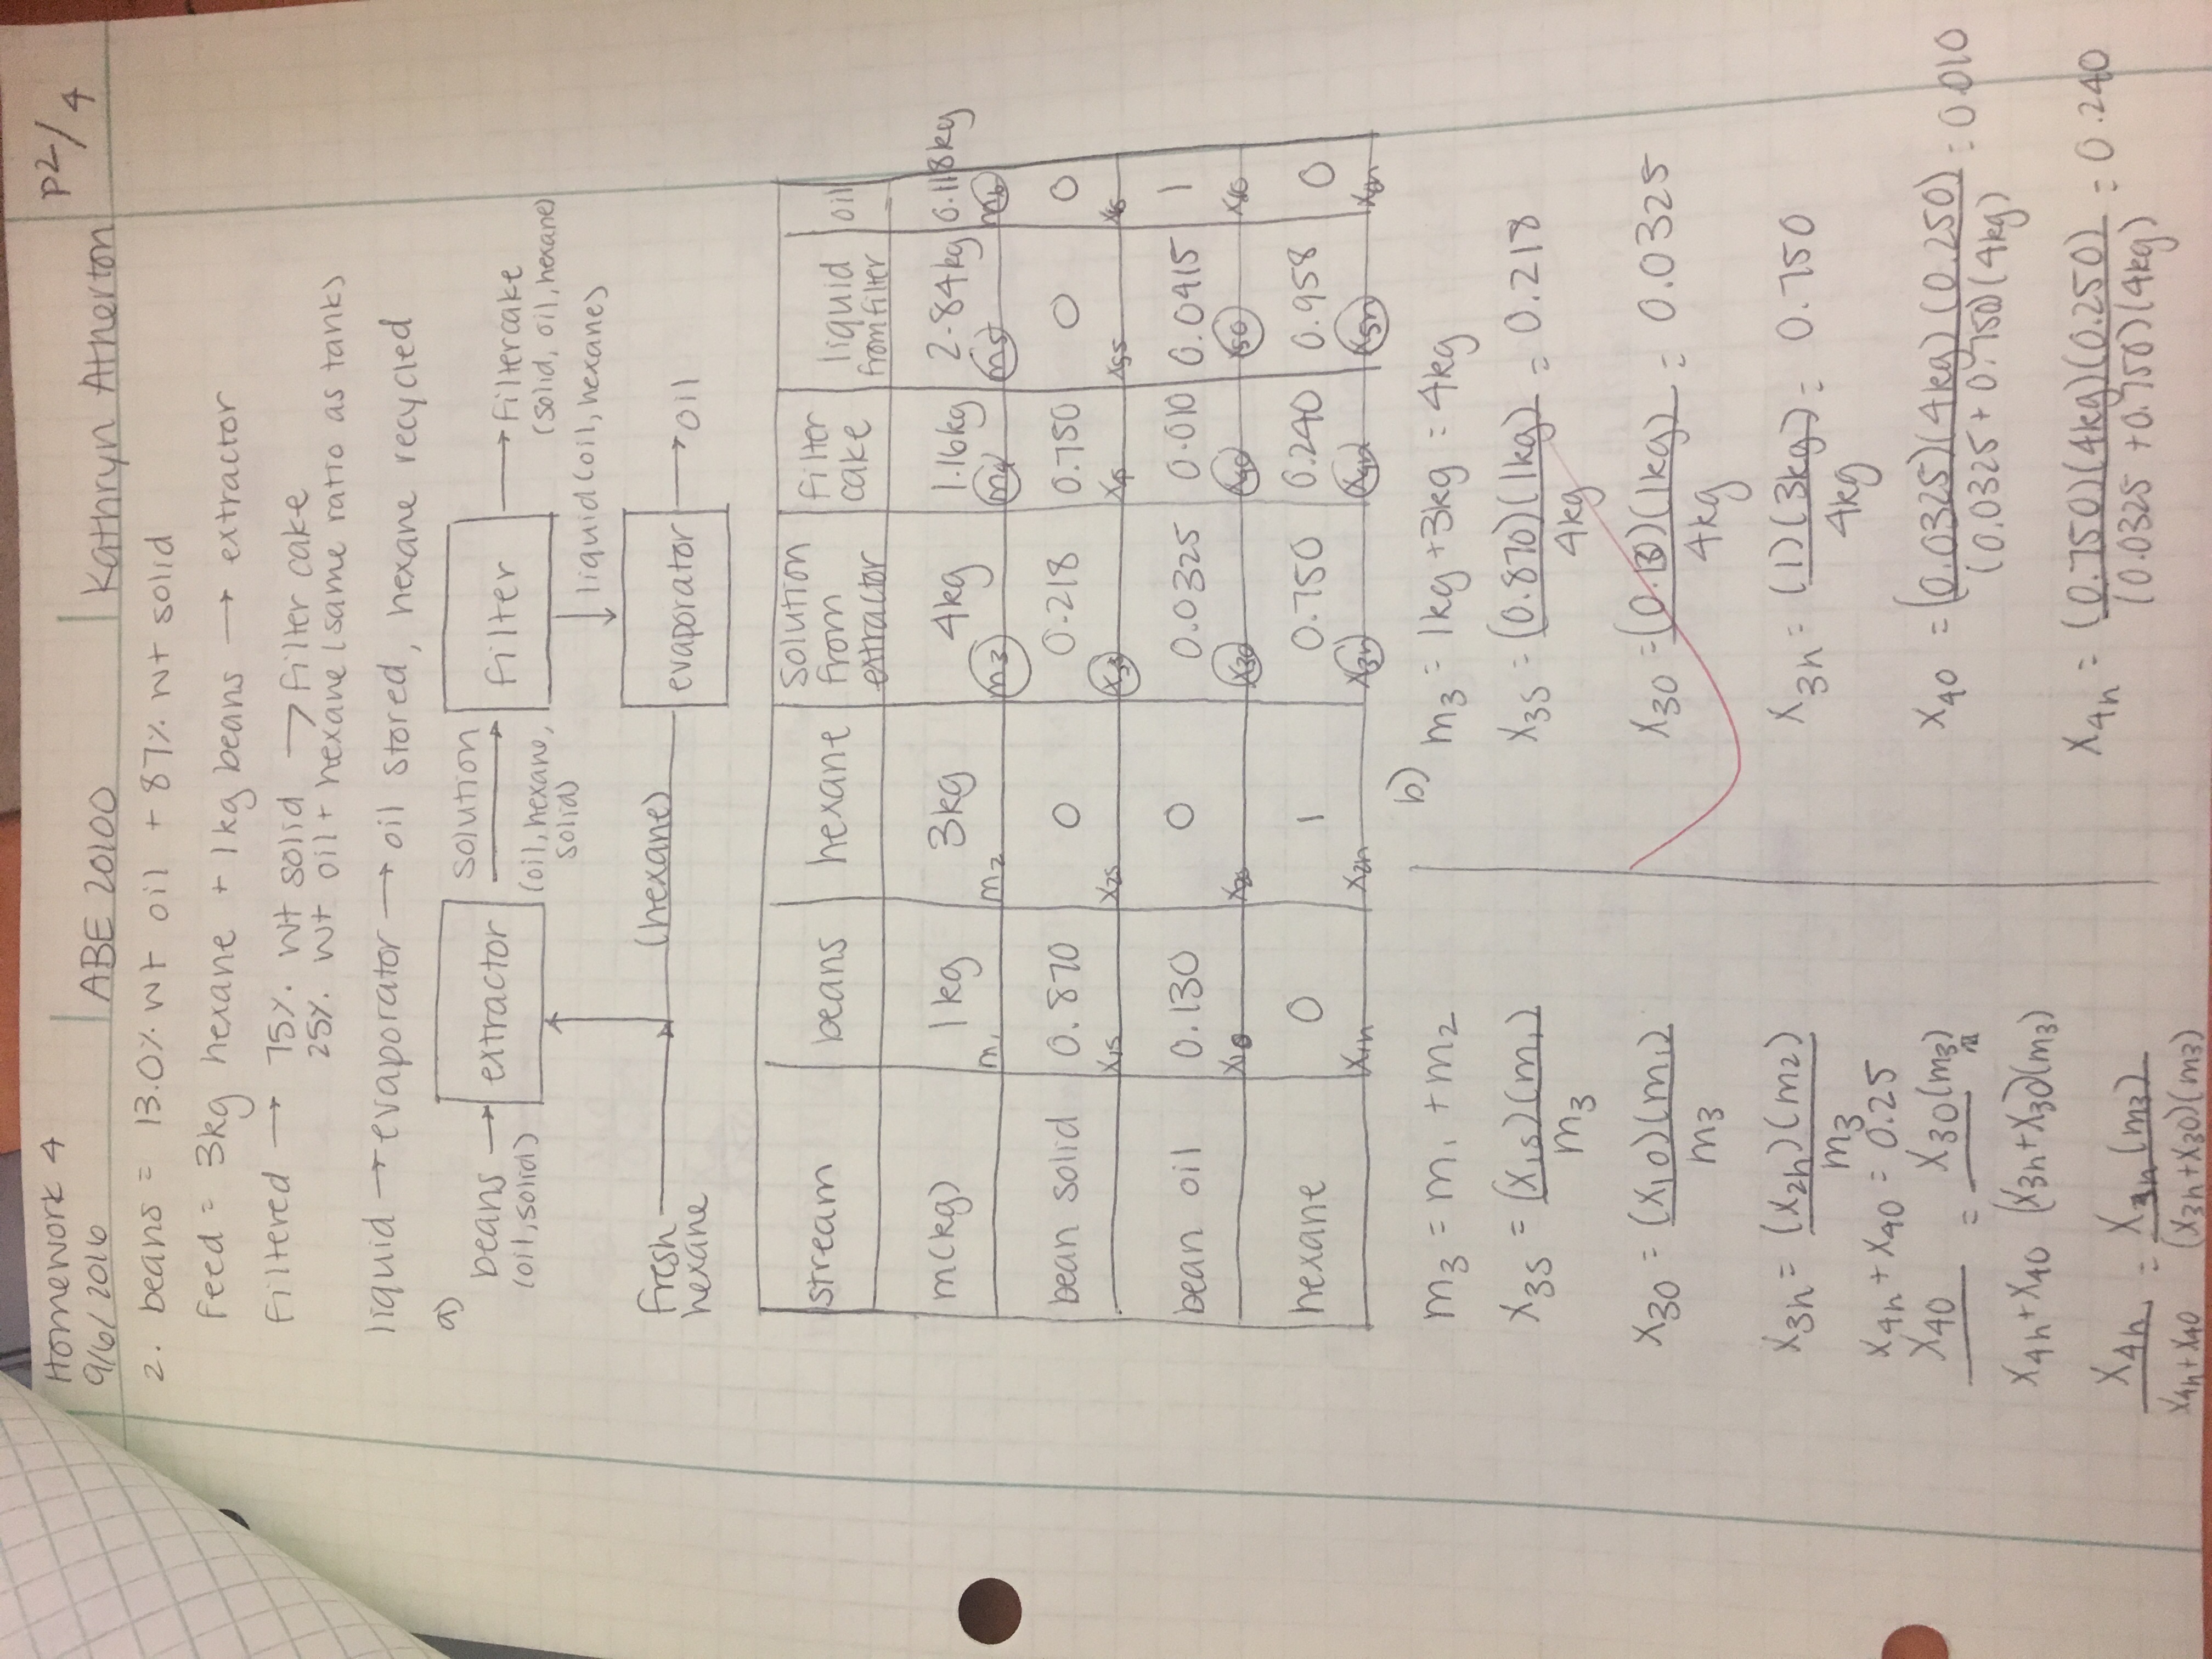 Homework 4
9/6/2016
ABE 20100
Kathryn Atherton
p2/4
2. beans = 13.0% wt oil + 87% wt solid
Feed = 3kg hexane + 1kg beans → extractor
Filtered → 75% wt solid → filter cake
25% wt oil + hexane (same ratio as tank)
liquid → evaporator → oil stored, hexane recycled
a)
beans → extractor solution → filter → filtercake
(oil, solid)
(oil, hexane, solid)
(solid, oil, hexane)
liquid (oil, hexane)
fresh hexane
(hexane)
evaporator → oil
stream | beans | hexane | solution from extractor | filter cake | liquid from filter | oil
m(kg) | 1kg | 3kg | 4kg | 1.16kg | 2.84kg | 0.118kg
m₁ m₂ m₃ m₄ m₅ m₆
bean solid | 0.870 | 0 | 0.218 | 0.750 | 0 | 0
x₁s x₂s x₃s x₄s x₅s x₆s
bean oil | 0.130 | 0 | 0.0325 | 0.010 | 0.0415 | 1
x₁o x₂o x₃o x₄o x₅o x₆o
hexane | 0 | 1 | 0.750 | 0.240 | 0.958 | 0
x₁h x₂h x₃h x₄h x₅h x₆h
m₃ = m₁ + m₂
x₃s = (x₁s)(m₁) / m₃
x₃o = (x₁o)(m₁) / m₃
x₃h = (x₂h)(m₂) / m₃
x₄h + x₄o = 0.25
x₄o / x₄h + x₄o = x₃o(m₃) / (x₃h + x₃o)(m₃)
x₄h / x₄h + x₄o = x₃h(m₃) / (x₃h + x₃o)(m₃)
b) m₃ = 1kg + 3kg = 4kg
x₃s = (0.870)(1kg) / 4kg = 0.218
x₃o = (0.130)(1kg) / 4kg = 0.0325
x₃h = (1)(3kg) / 4kg = 0.750
x₄o = (0.0325)(4kg)(0.250) / (0.0325 + 0.750)(4kg) = 0.010
x₄h = (0.750)(4kg)(0.250) / (0.0325 + 0.750)(4kg) = 0.240